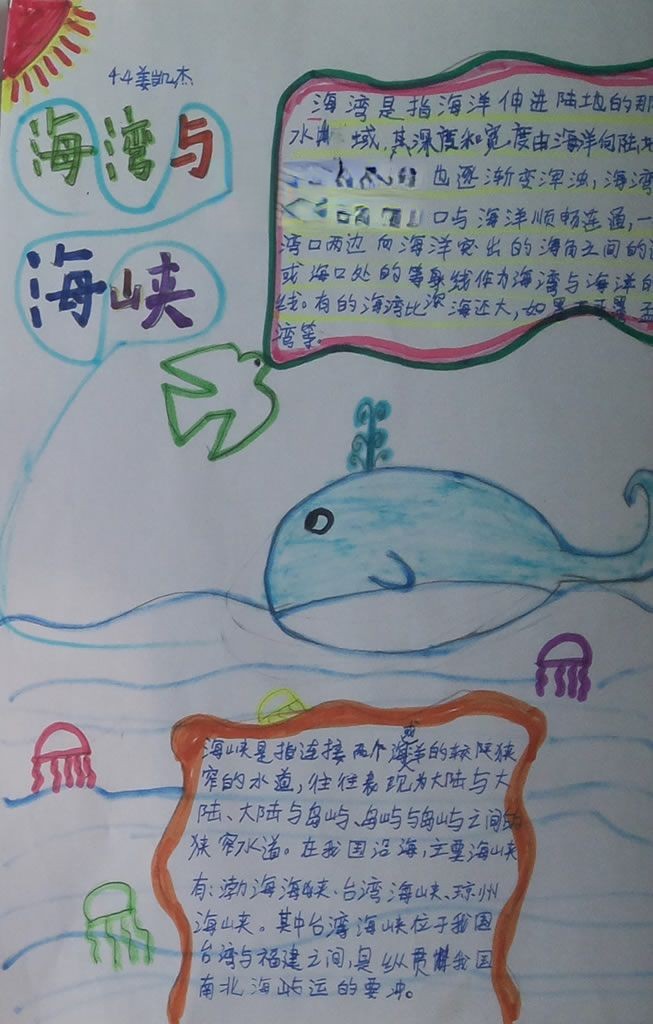 4.4姜凯杰
海湾与
海峡
海湾是指海洋伸进陆地的那
水 域,其深度和宽度由海洋向陆地
也逐渐变浑浊,海湾
口与海洋顺畅连通,一
湾口两边向海洋突出的海角之间的
或海口处的等身线作为海湾与海洋的
线。有的海湾比 海还大,如
湾等。
海峡是指连接两个海或洋的较陕狭
窄的水道,往往表现为大陆与大
陆、大陆与岛屿、岛屿与岛屿之间的
狭窄水道。在我国沿海,主要海峡
有:渤海海峡、台湾海峡、琼州
海峡。其中台湾海峡位于我国
台湾与福建之间,是纵贯 我国
南北海 运的要冲。